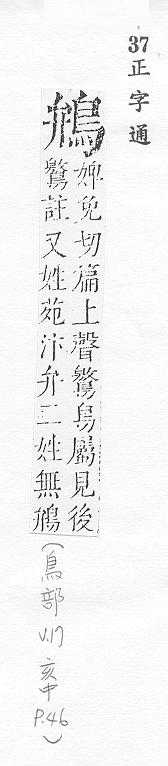 37 正字通
鴘
婢免切篇上聲鷙鳥屬見後
鷙註又姓苑汴弁二姓無鴘
(鳥部 V.17 亥中 P.46)